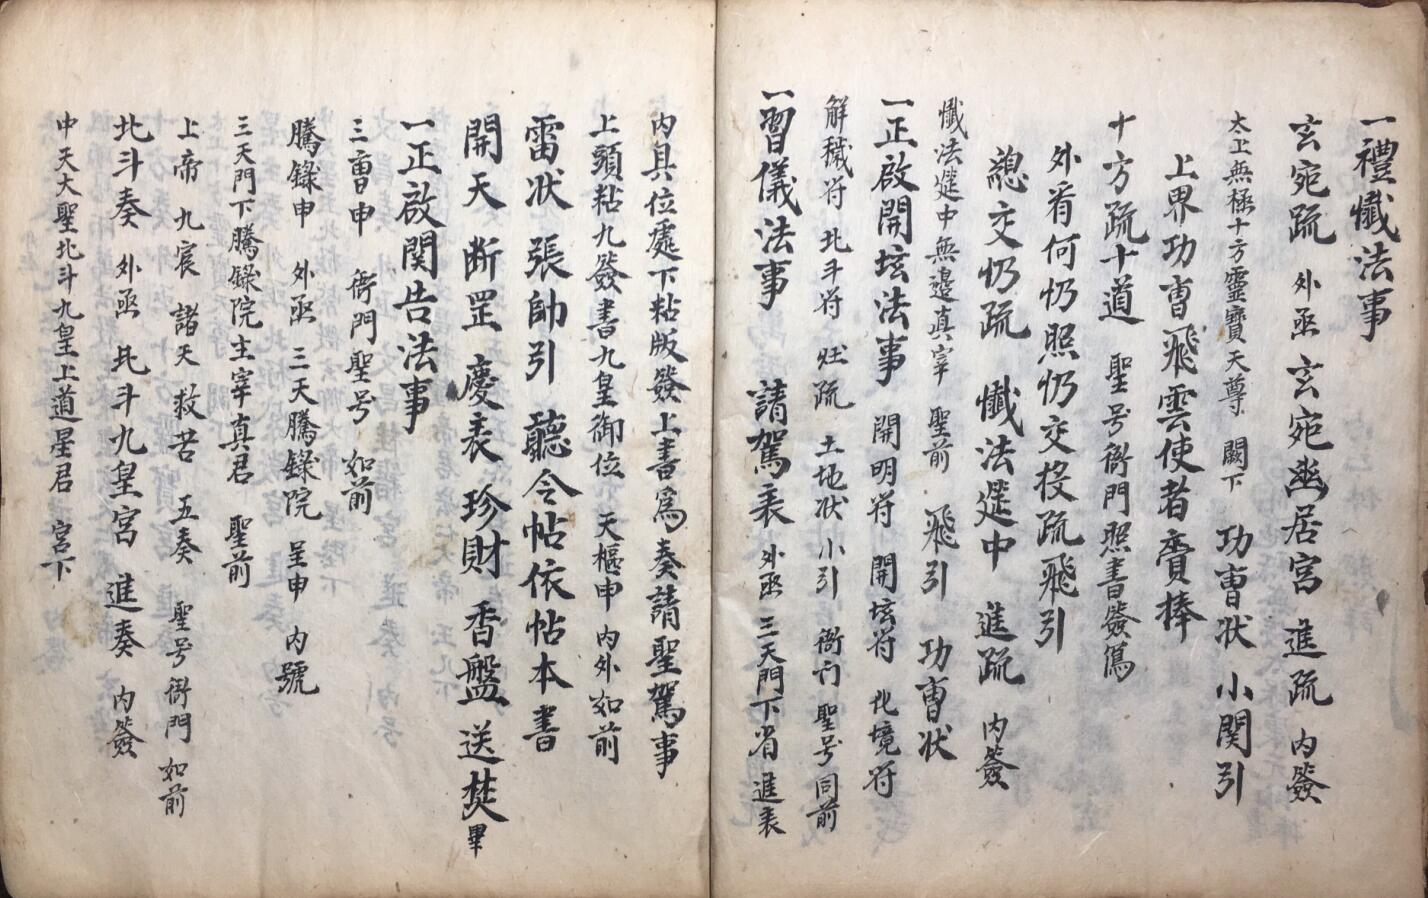 一禮懺法事
玄宛疏 外函 玄宛幽居宮 進疏 内簽
太上無極十方靈寶天尊 闕下 功曹状 小関引
上界功曹飛雲使者賫捧
十方疏十道 聖号衙門照書簽
外有何仍照仍交投疏飛引
總交仍疏 懺法筵中 進疏 内簽
懺法筵中無邉真宰 聖前 飛引 功曹状
一正啟開壇法事 開明符 開壇符 北境符
解穢符 北斗符 疏 土地状 小引 衙门 聖号同前
一習儀法事 請駕表 外函 三天門下省 進表
内具位處下粘版簽上書為奏請聖駕事
上頭粘九簽書九皇御位 天樞申 内外如前
雷状 張帥引 聽令帖依帖本書
開天断罡 慶表 珍財 香盤 送焚畢
一正啟関告法事
三曹申 衙門聖号 如前
騰錄申 外函 三天騰錄院 呈申 内號
三天門下騰錄院主宰真君 聖前
上帝 九宸 諸天 救苦 五奏 聖号衙門 如前
北斗奏 外函 北斗九皇宮 進奏 内簽
中天大聖北斗九皇上道星君 宮下